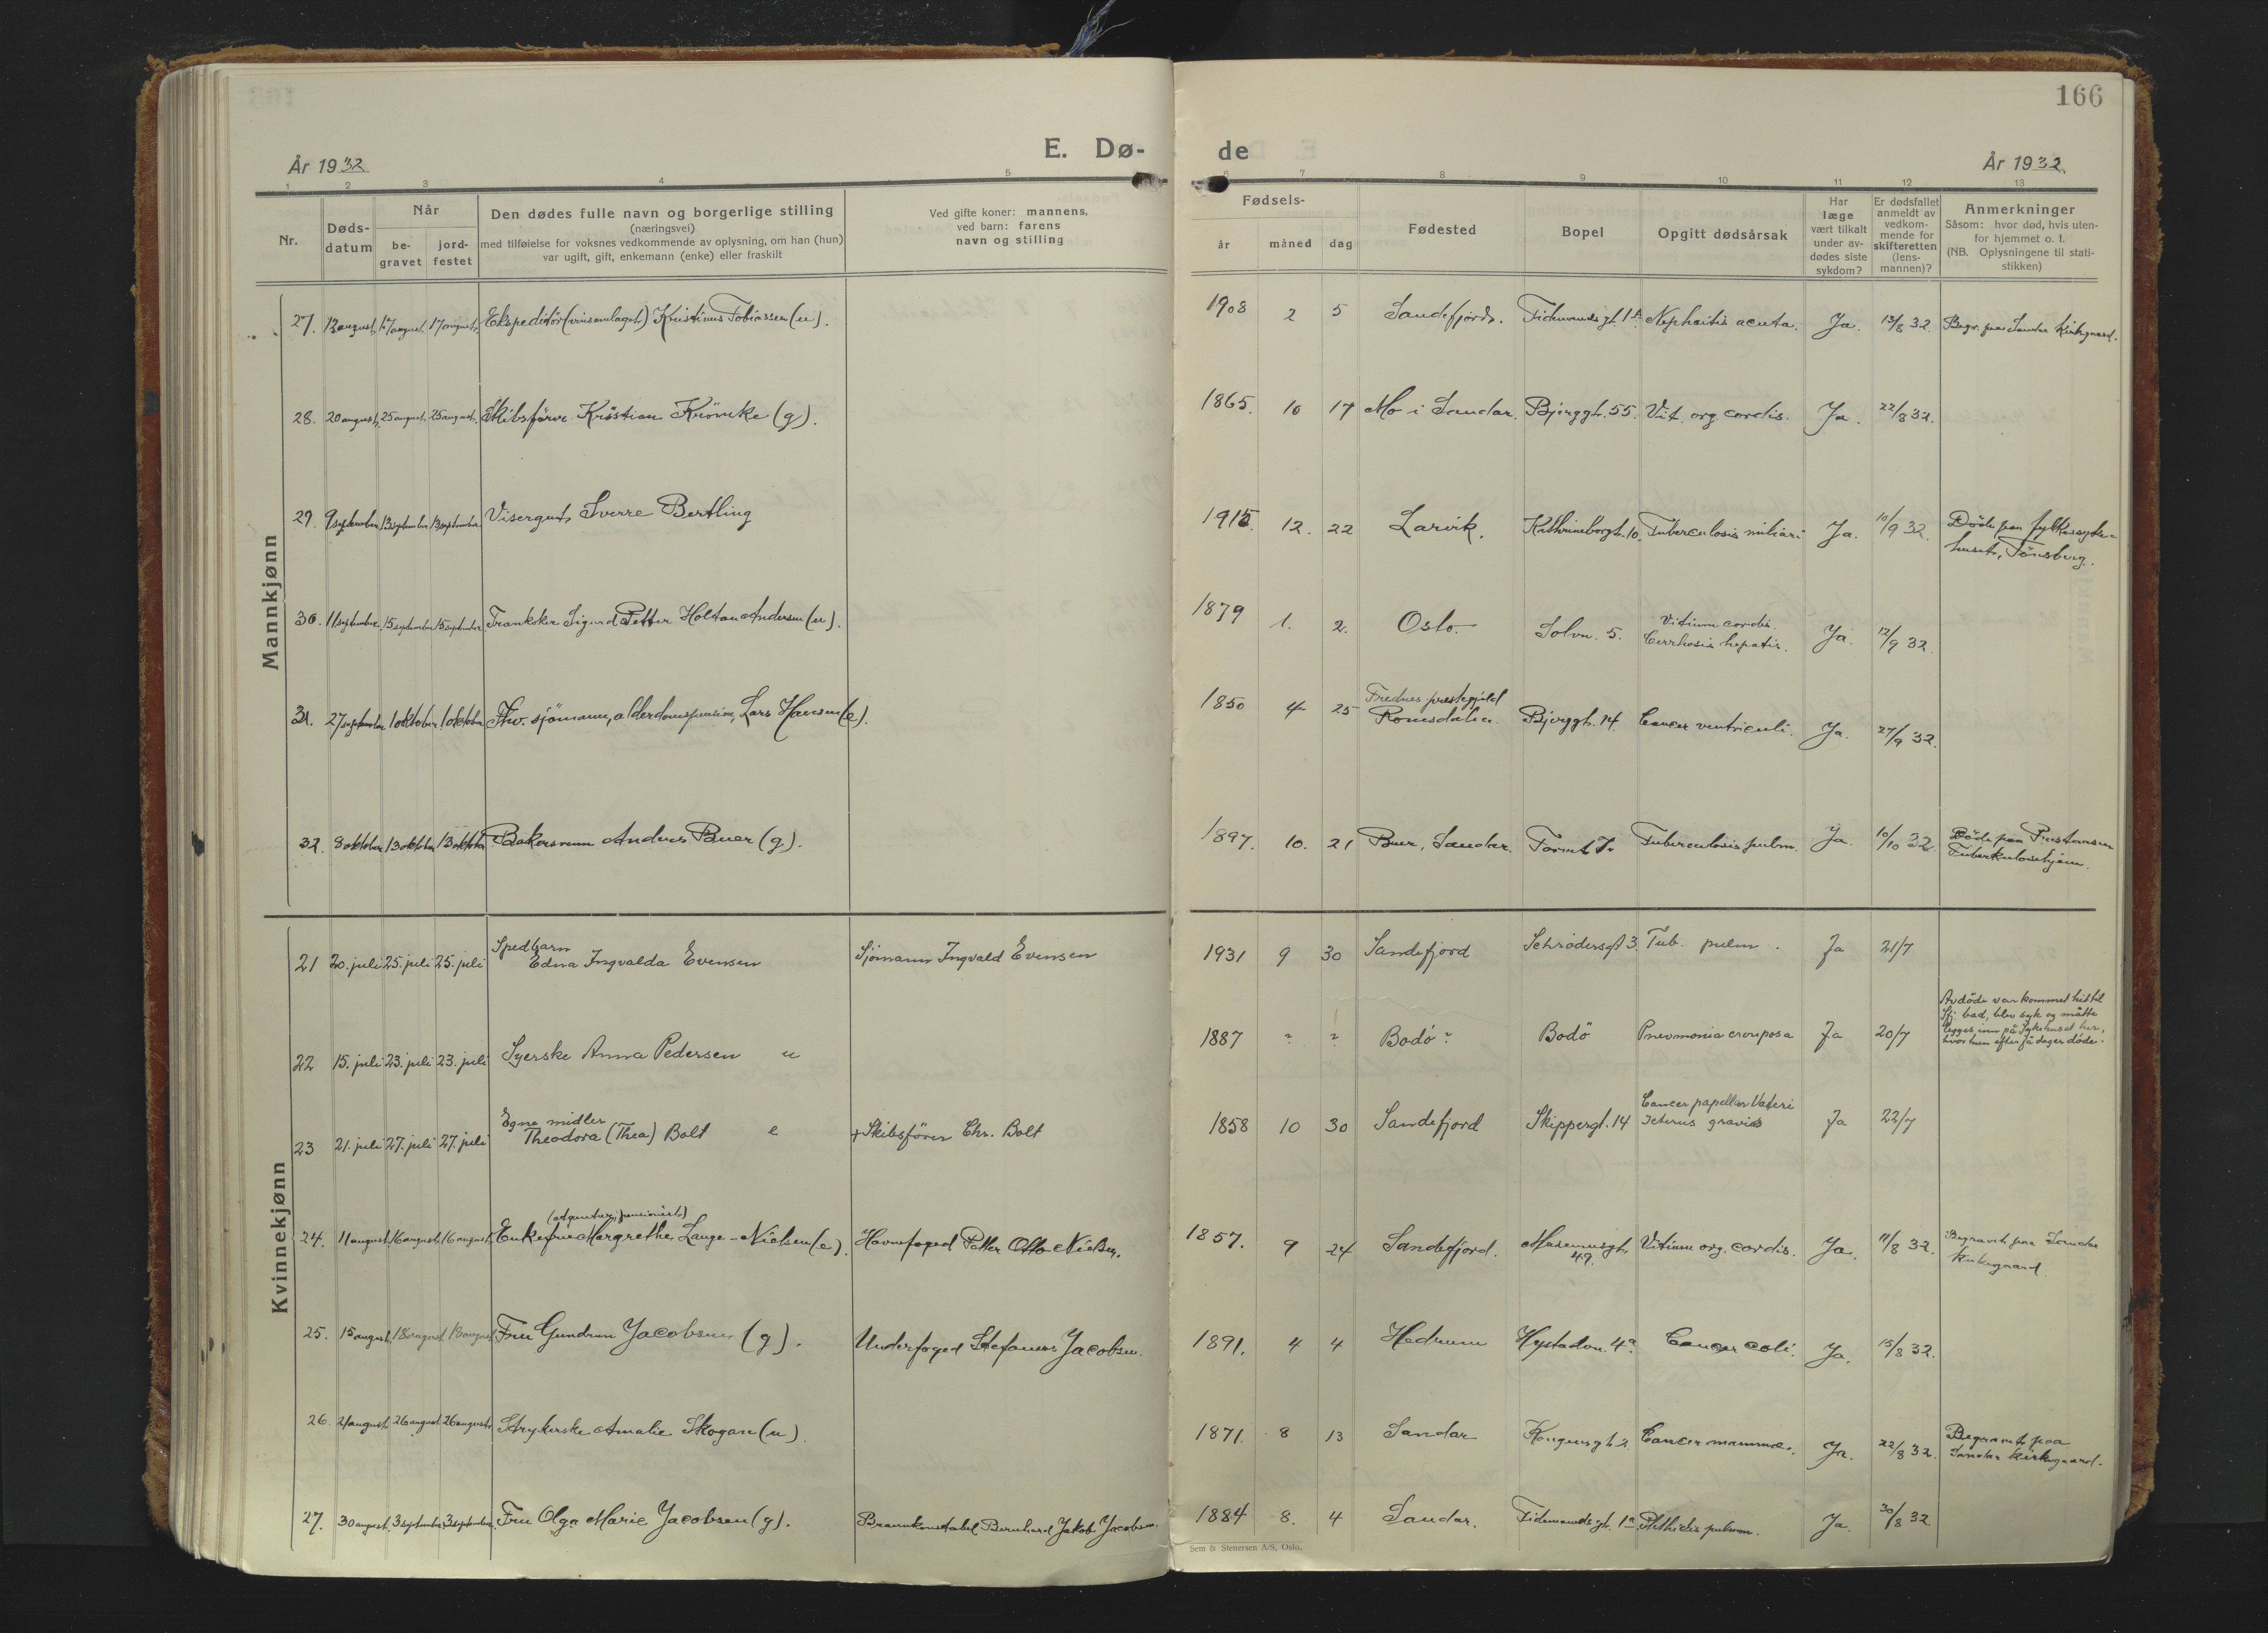 166
E. Dø- de
År 1932 År 1932.
1 2 3 4 5 6 7 8 9 10 11 12 13
Nr.
Døds-
datum
Når
be-
gravet
jord-
festet
Den dødes fulle navn og borgerlige stilling
(næringsvei)
med tilføielse for voksnes vedkommende av oplysning, om han (hun)
var ugift, gift, enkemann (enke) eller fraskilt
Ved gifte koner: mannens,
ved barn: farens
navn og stilling
Fødsels-
år måned dag
Fødested
Bopel
Opgitt dødsårsak
Har
læge
vært tilkalt
under av-
dødes siste
sykdom?
Er dødsfallet
anmeldt av
vedkom-
mende for
skifteretten
(lens-
mannen)?
Anmerkninger
Såsom: hvor død, hvis uten-
for hjemmet o. l.
(NB. Oplysningene til stati-
stikken)
Mannkjønn
27. 12 august. 17 august. 17 august. Ekspeditör (vinsamlaget) Kristinus Tobiassen (u). 1908 2 5 Sandefjord. Tidemandsgt. 1A. Nephritis acuta. Ja. 13/8 32. Begr. paa Sandar Kirkegaard.
28. 20 august. 25 august. 25 august. Skibsförer Kristian Krömcke (g). 1865. 10 17 Mo i Sandar. Bjerggt. 55. Vit. org. cordis. Ja. 22/8 32.
29. 9 september 13 september 13 september Visergut Sverre Bertling 1915. 12. 22 Larvik. Kathrineborgt. 10. Tuberculosis miliari Ja. 10/9 32. Döde paa fylkessyke-
huset, Tönsberg.
30. 11 september. 15 september 15 september. Trankoker Sigurd Petter Holtan Andersen (u). 1879 1. 2. Oslo. Solvn. 5. Vitium cordis.
Cirrhosis hepatis. Ja. 12/9 32.
31. 27 september 1 oktober 1 oktober Fhv. sjömann, alderdomspension, Lars Hansen (e). 1850 4 25 Frednes prestegjeld
Romsdalen. Bjerggt. 14. Cancer ventriculi. Ja. 27/9 32.
32. 8 oktober 13 oktober 13 oktober Bakersvenn Anders Buer (g). 1897. 10. 21 Buer, Sandar. Torvet 7. Tuberculosis pulm. Ja. 10/10 32. Döde paa
Tuberkulosehjem.
Kvinnekjønn
21 20. juli 25. juli 25. juli Spedbarn
Edna Ingvalda Evensen Sjömann Ingvald Evensen 1931 9 30 Sandefjord Schrödersgt 3 Tub. pulm. Ja 21/7
22 15. juli 23. juli 23. juli Syerske Anna Pedersen u 1887 ? ? Bodö? Bodö Pneumonia crouposa Ja 20/7 Avdöde var kommet hit til
Sfj. bad, blev syk og måtte
legges inn på Sykehuset her,
hvor hun efter få dager döde.
23 21. juli 27. juli 27. juli Egne midler
Theodora (Thea) Bolt e + Skibsförer Chr. Bolt 1858 10 30 Sandefjord Skippergt. 14 Cancer papellar Vateri
Icterus gravis Ja 22/7
24. 11 august. 16 august. 16 august. (adjunkt, pensionist)
Enkefru Margrethe Lange-Nielsen (e). Havnefoged Petter Otto Nielsen. 1857. 9 24 Sandefjord. Museumsgt.
49. Vitium org. cordis. Ja. 11/8 32. Begravet paa Sandar
Kirkegaard.
25. 15 august. 18 august 18 august Fru Gundrun Jacobsen (g). Underfoged Stefanus Jacobsen. 1891. 4 4 Hedrum Hystadvn. 4a. Cancer coli. Ja. 15/8 32.
26. 21 august. 26 august 26 august. Strykerske Amalie Skogan (u) 1871. 8 13 Sandar Kongensgt. 2. Cancer mammæ. Ja. 22/8 32. Begravet paa
Sandar Kirkegaard.
27. 30 august. 3 september 3 september. Fru Olga Marie Jacobsen (g). Brannkonstabel Bernhard Jakob Jacobsen. 1884 8. 4 Sandar. Tidemandsgt. 1a Phthisis pulmon. Ja. 30/8 32
Sem & Stenersen A/S, Oslo.